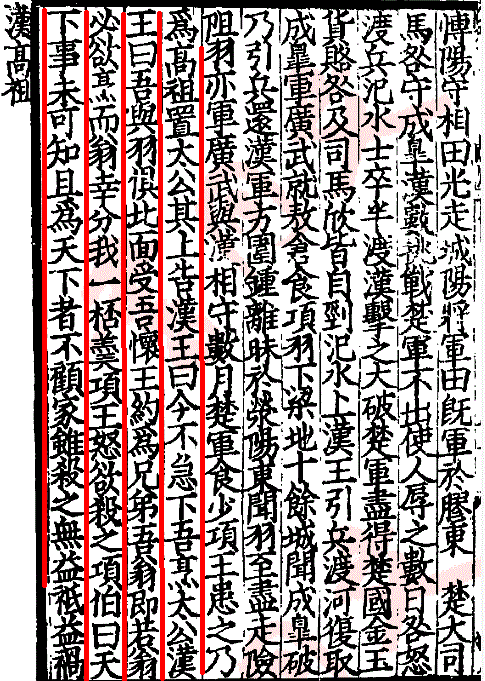 博陽守相田光走城陽將軍田既軍於膠東　楚大司
馬各守成皐漢數挑戰楚軍不出使人辱之數日咎怒
渡兵汜水士卒半渡漢擊之大破楚軍盡得楚國金玉
貨賂咎及司馬欣皆自剄汜水上漢王引兵渡河復取
成皐軍廣武就敖倉食項羽下梁地十餘城聞成皐破
乃引兵還漢軍方圍鍾離昧於滎陽東聞羽至盡走險
阻羽亦軍廣武與漢相守數月楚軍食少項王患之乃
爲高祖置太公其上告漢王曰今不急下吾烹太公漢
王曰吾與羽俱北面受吾懷王約爲兄弟吾翁即若翁
必欲烹而翁幸分我一桮羹項王怒欲殺之項伯曰天
下事未可知且爲天下者不顧家雖殺之無益祇益禍
漢高祖